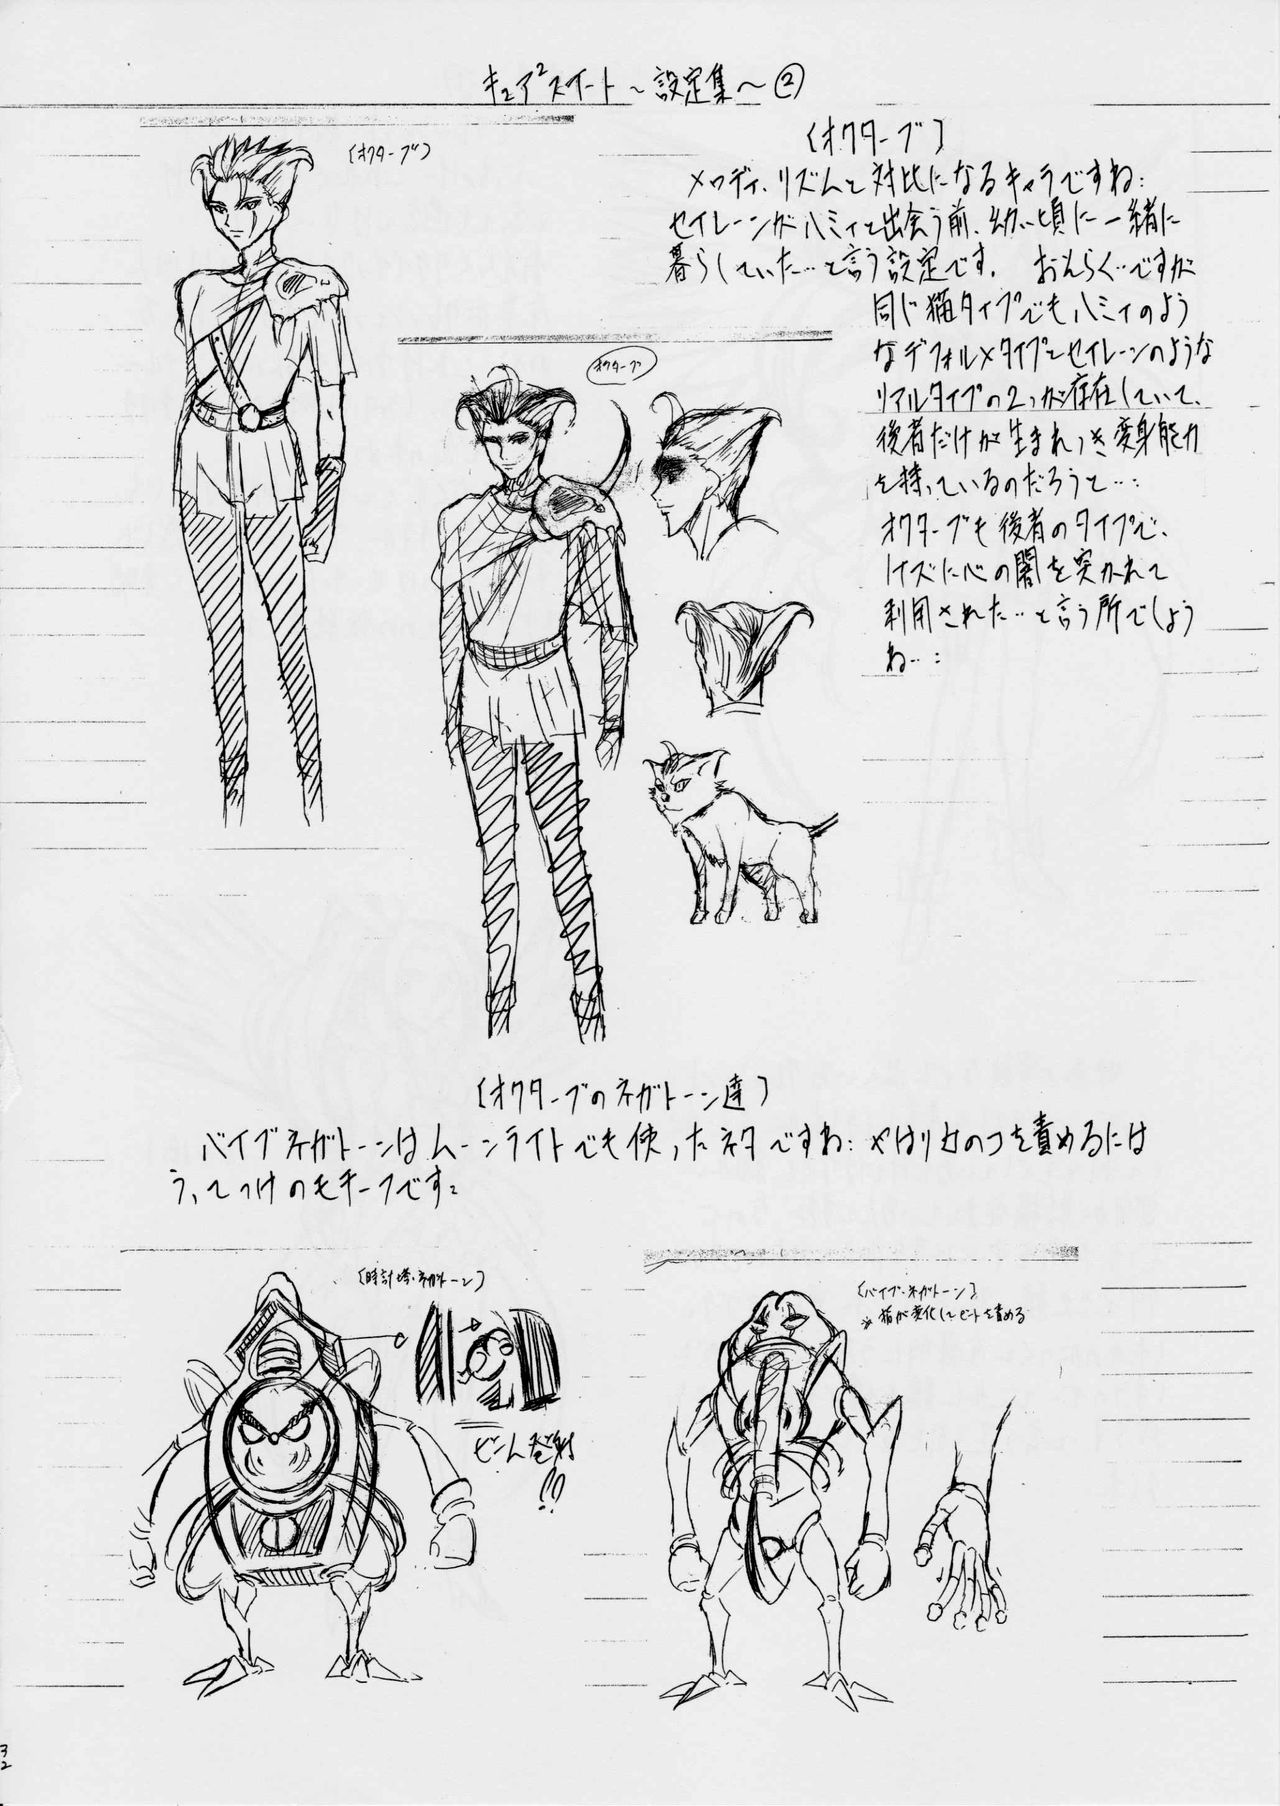 キュア²スイート～設定集～②
〔オクターブ〕
〔オクターブ〕
メロディ、リズムと対比になるキャラですね…
セイレーンがハミィと出会う前、幼い頃に一緒に
暮らしていた…と言う設定です。 おそらく…ですが
同じ猫タイプでもハミィのよう
なデフォルメタイプとセイレーンのような
リアルタイプの2つが存在していて、
後者だけが生まれつき変身能力
を持っているのだろうと…
オクターブも後者のタイプで、
ノイズに心の闇を突かれて
利用された…と言う所でしょう
ね…
オクターブ
〔オクターブのネガトーン達〕
バイブネガトーンはムーンライトでも使ったネタですね… やはり女のコを責めるには
うってつけのモチーフです…
〔時計塔・ネガトーン〕
ビーム発射!!
〔バイブ・ネガトーン〕
※猫が変化してビートを責める
32